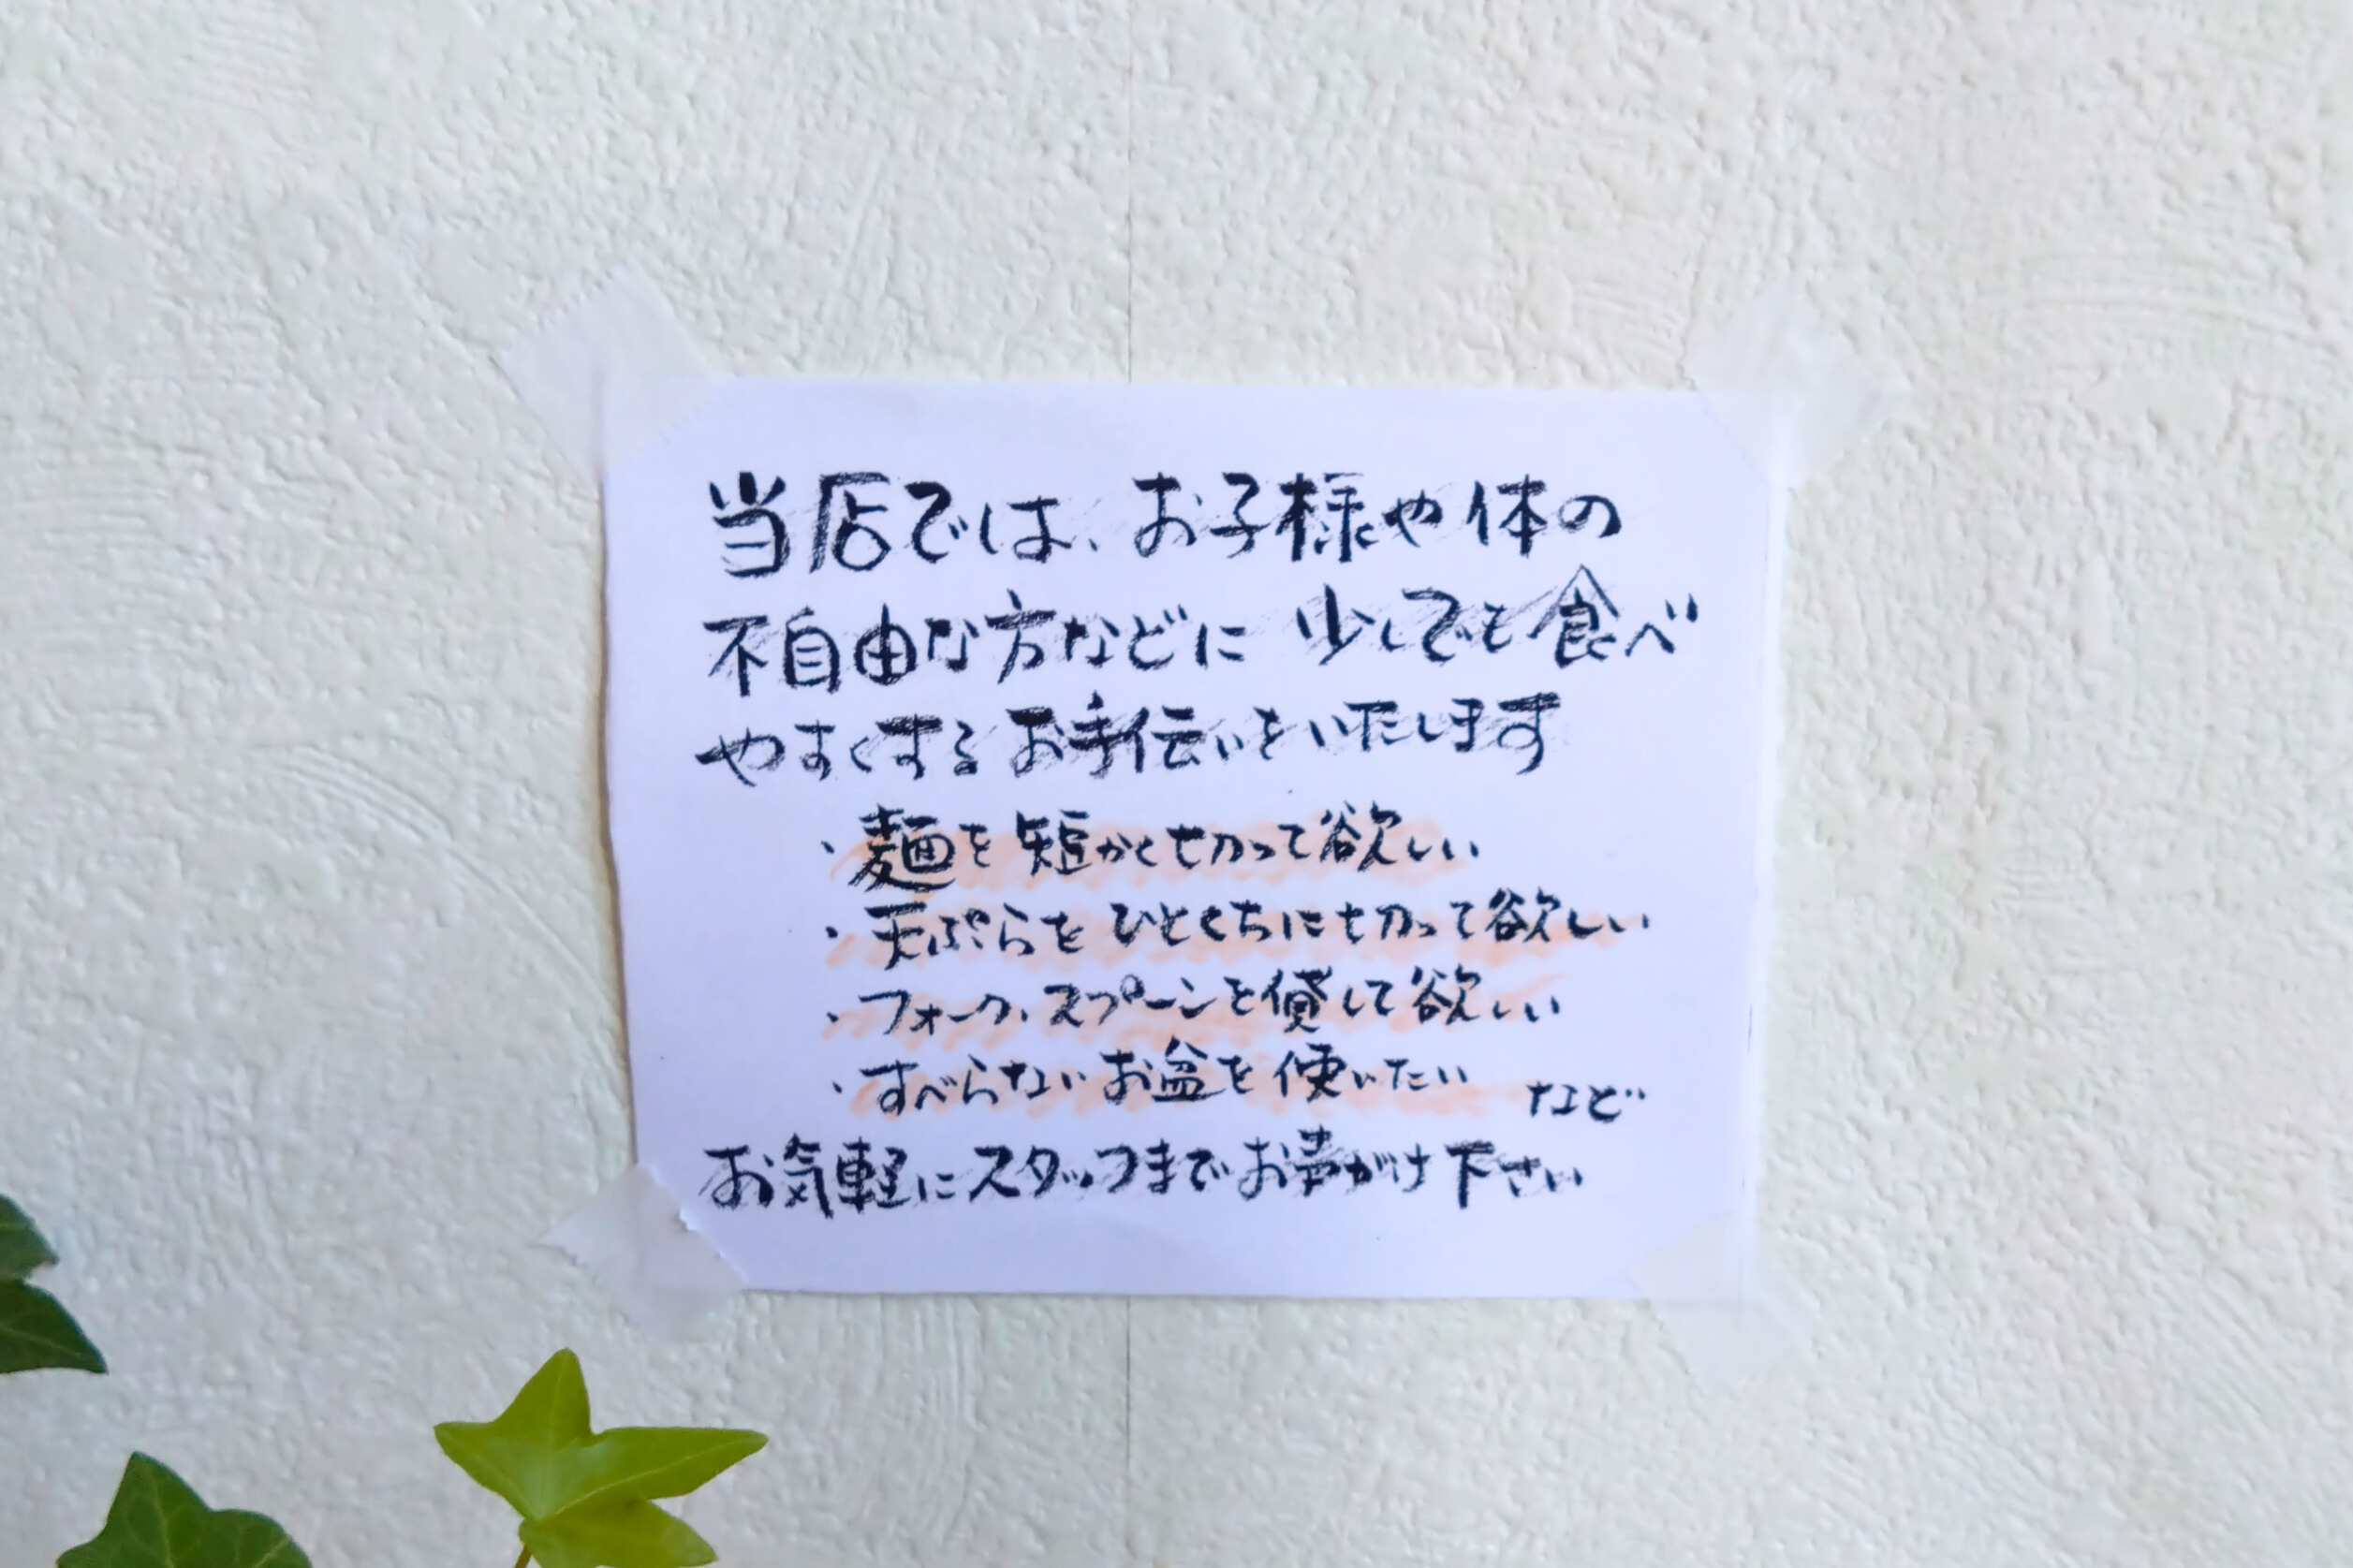 当店では、お子様や体の
不自由な方などに 少しでも食べ
やすくするお手伝いをいたします
・麺を短かく切って欲しい
・天ぷらをひとくちに切って欲しい
・フォーク、スプーンを貸して欲しい
・すべらないお盆を使いたい など
お気軽にスタッフまでお声がけ下さい